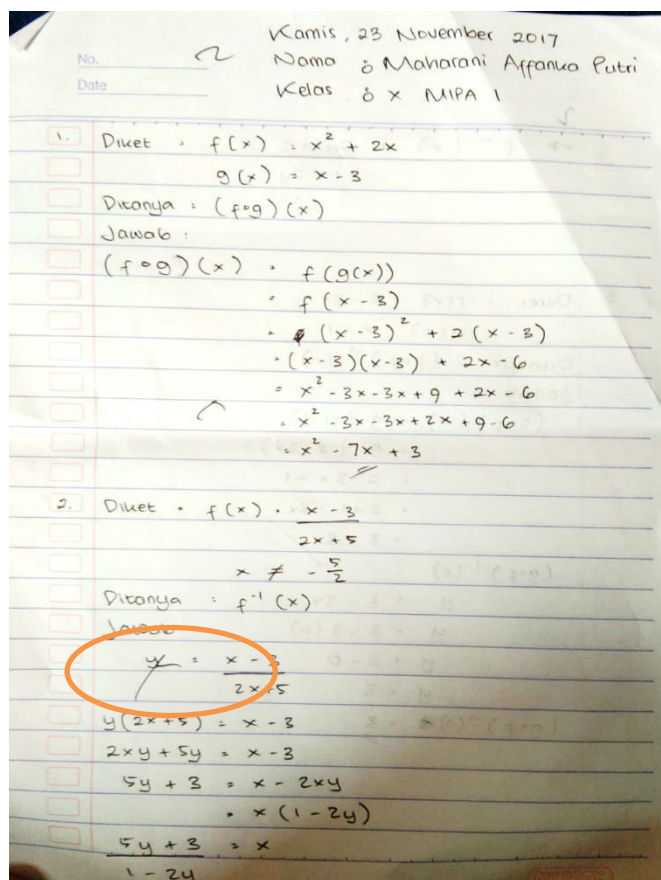 Kamis, 23 November 2017
No.
Nama : Maharani Affanka Putri
Date
Kelas : X MIPA 1
1. Diket : f(x) = x² + 2x
g(x) = x - 3
Ditanya : (f∘g)(x)
Jawab :
(f∘g)(x) = f(g(x))
= f(x - 3)
= (x - 3)² + 2(x - 3)
= (x - 3)(x - 3) + 2x - 6
= x² - 3x - 3x + 9 + 2x - 6
= x² - 3x - 3x + 2x + 9 - 6
= x² - 7x + 3
2. Diket : f(x) = x - 3
2x + 5
x ≠ - 5/2
Ditanya : f⁻¹(x)
Jawab
y = x - 3
2x + 5
y(2x + 5) = x - 3
2xy + 5y = x - 3
5y + 3 = x - 2xy
= x(1 - 2y)
5y + 3 = x
1 - 2y